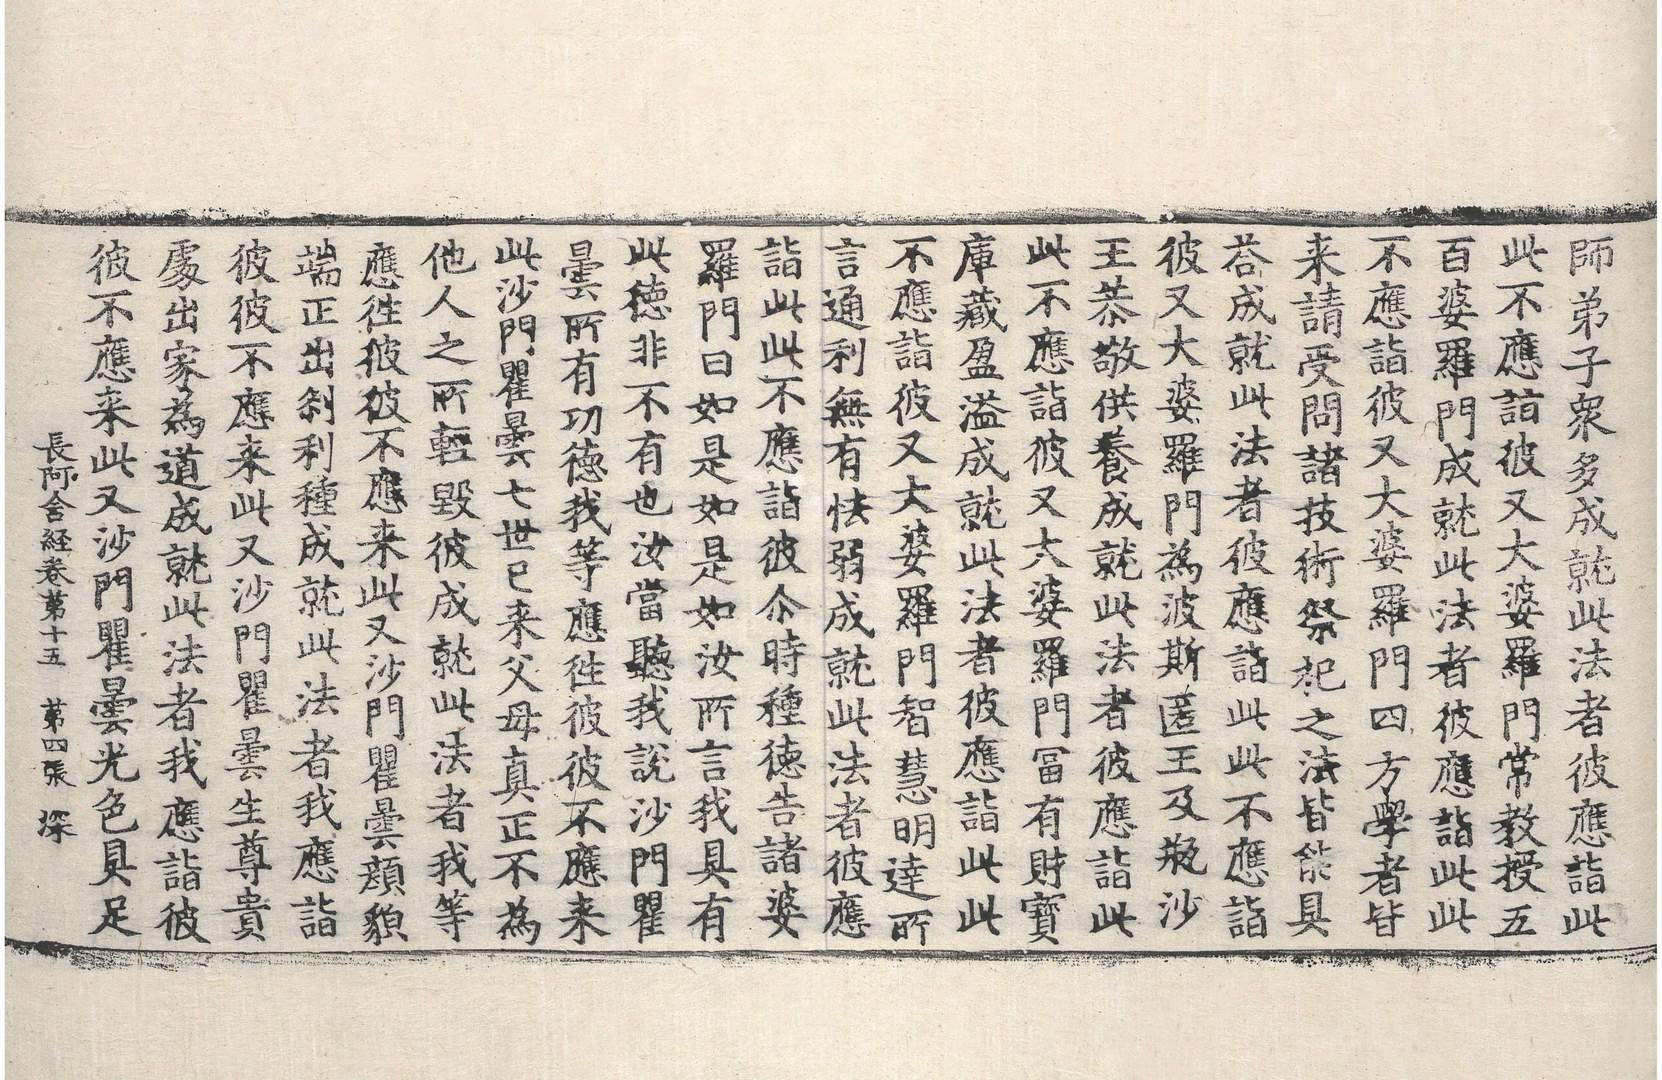 師弟子衆多成就此法者彼應詣此
此不應詣彼又大婆羅門常教授五
百婆羅門成就此法者彼應詣此此
不應詣彼又大婆羅門四方學者皆
来請受問諸技術祭祀之法皆能具
荅成就此法者彼應詣此此不應詣
彼又大婆羅門為波斯匿王及瓶沙
王恭敬供養成就此法者彼應詣此
此不應詣彼又大婆羅門冨有財寶
庫藏盈溢成就此法者彼應詣此此
不應詣彼又大婆羅門智慧明達所
言通利無有怯弱成就此法者彼應
詣此此不應詣彼尒時種德告諸婆
羅門曰如是如是如汝所言我具有
此德非不有也汝當聽我說沙門瞿
曇所有功德我等應徃彼彼不應来
此沙門瞿曇七世已来父母真正不為
他人之所輕毀彼成就此法者我等
應徃彼彼不應来此又沙門瞿曇顔貌
端正出刹利種成就此法者我應詣
彼彼不應来此又沙門瞿曇生尊貴
處出家為道成就此法者我應詣彼
彼不應来此又沙門瞿曇光色具足
長阿含経卷第十五　第四張　深